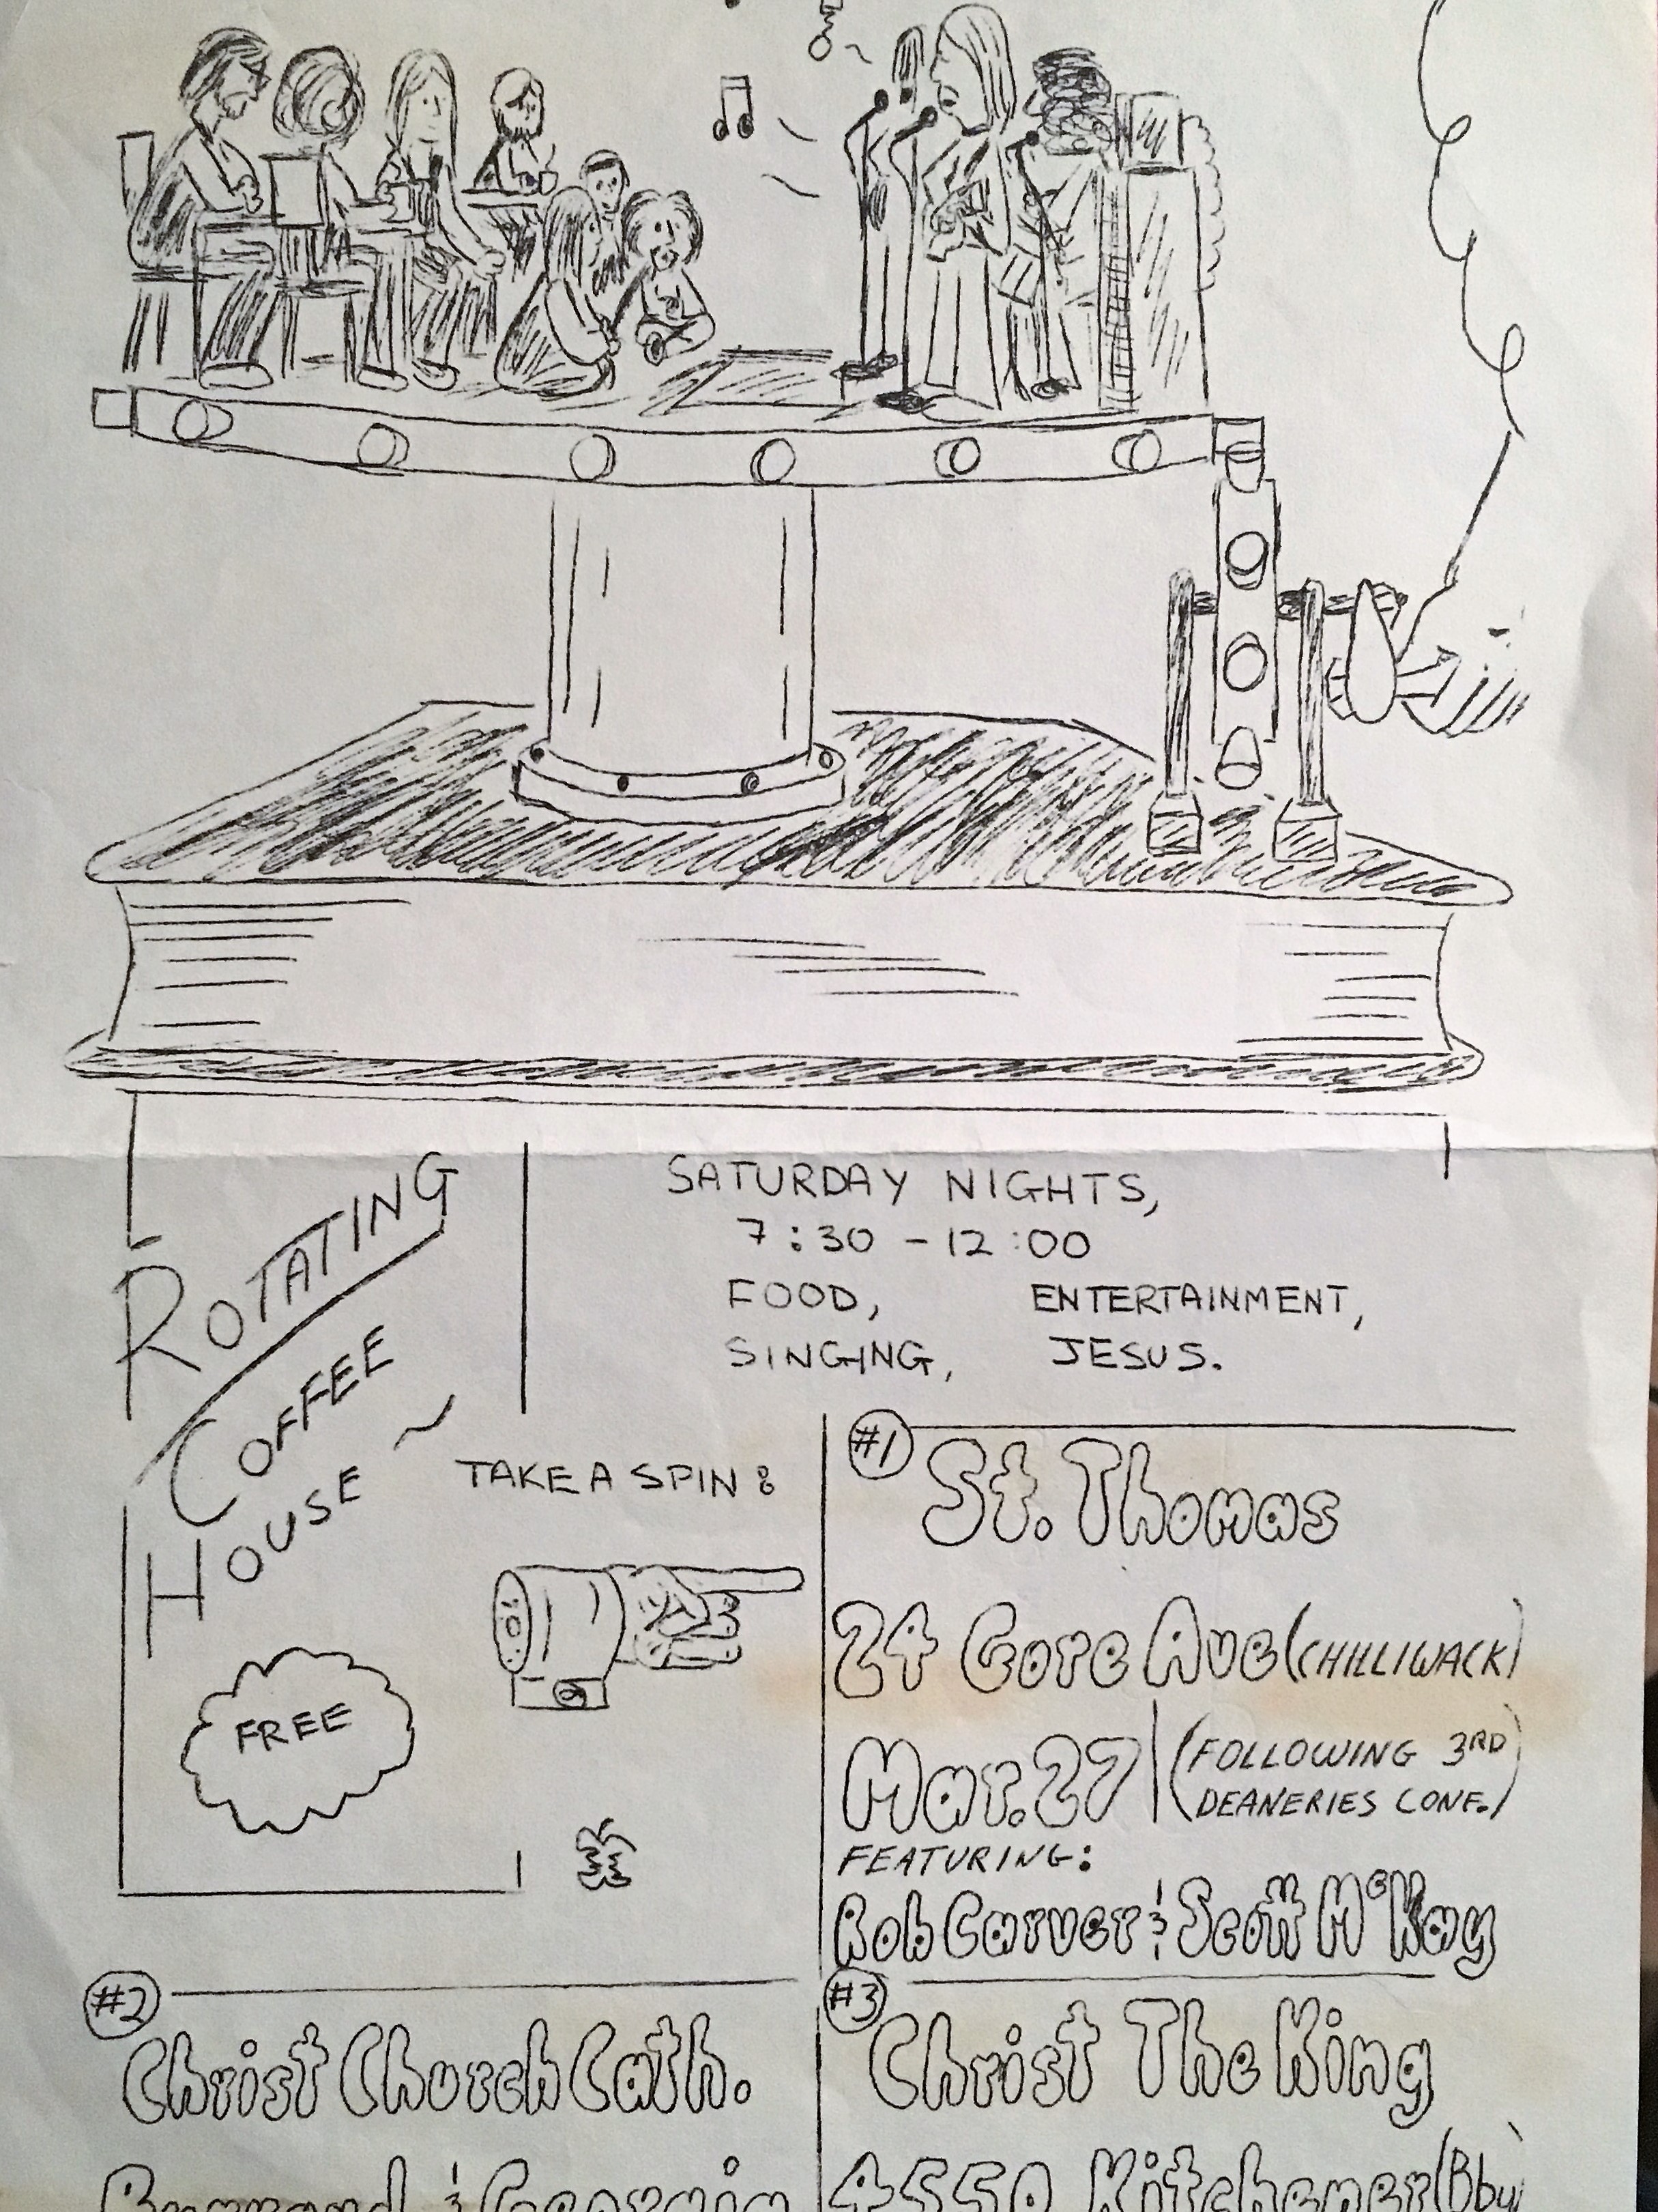 ROTATING
COFFEE
HOUSE ~
FREE
SATURDAY NIGHTS,
7:30 - 12:00
FOOD, ENTERTAINMENT,
SINGING, JESUS.
TAKE A SPIN :
#1
St. Thomas
24 Gore Ave (CHILLIWACK)
Mar. 27 (FOLLOWING 3RD
DEANERIES CONF.)
FEATURING:
Rob Carver & Scott McKay
#2
Christ Church Cath.
Burrard & Georgia
#3
Christ The King
4550 Kitchener (Bby)